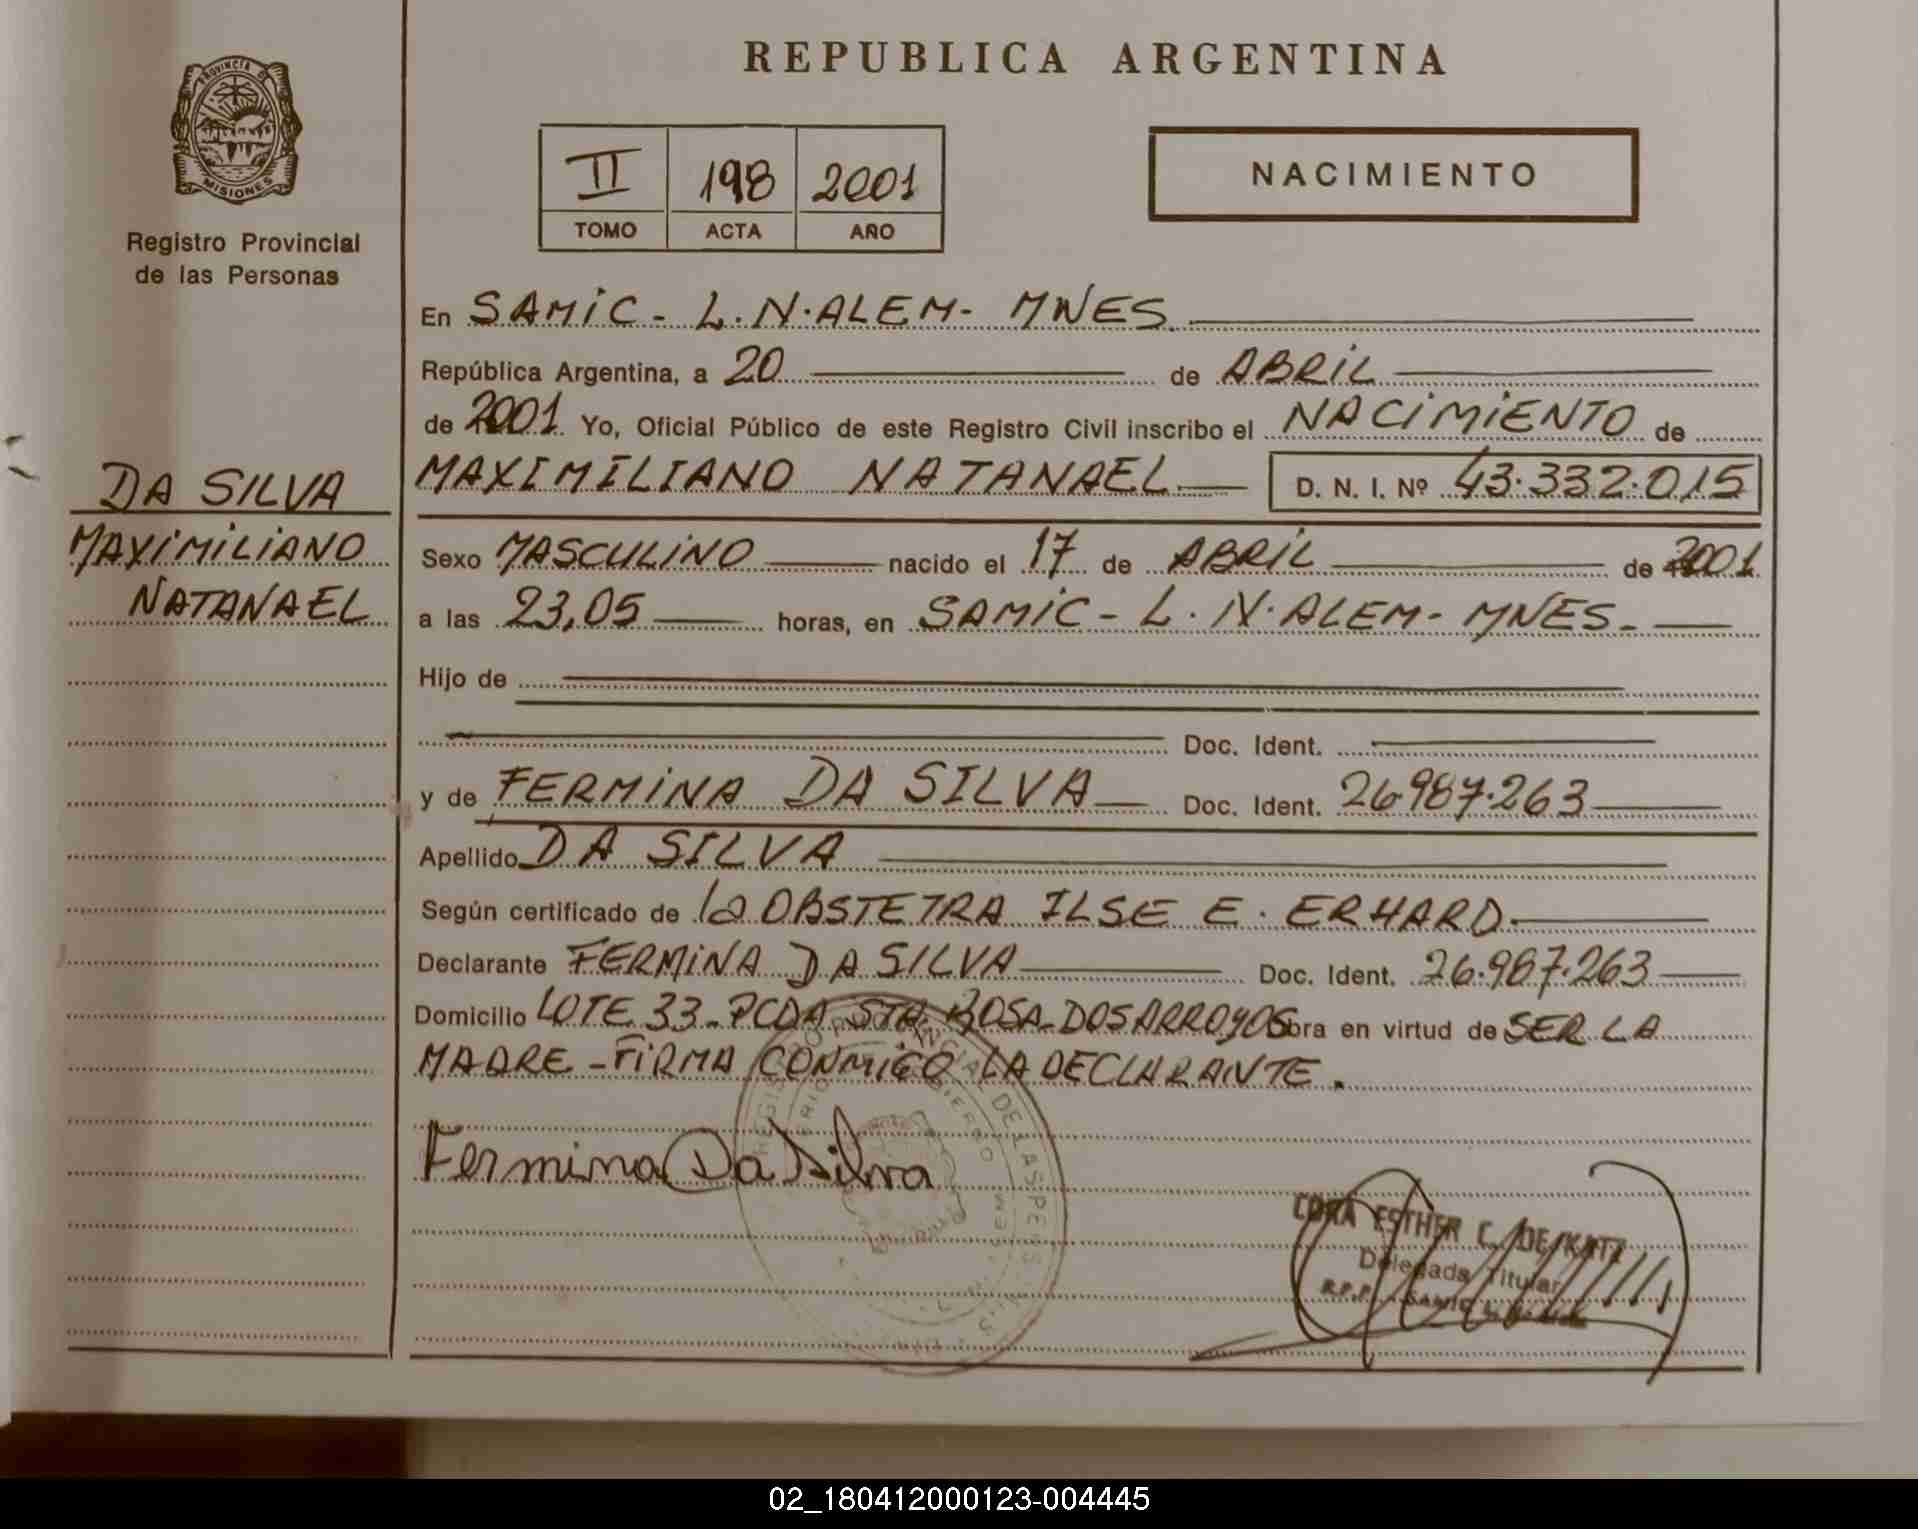 REPUBLICA ARGENTINA
PROVINCIA DE
MISIONES
Registro Provincial
de las Personas
II 198 2001
TOMO ACTA AÑO
NACIMIENTO
En SAMIC - L.N.ALEM - MNES.
República Argentina, a 20 de ABRIL
de 2001 Yo, Oficial Público de este Registro Civil inscribo el NACIMIENTO de
MAXIMILIANO NATANAEL D. N. I. Nº 43.332.015
DA SILVA
MAXIMILIANO
NATANAEL
Sexo MASCULINO nacido el 17 de ABRIL de 2001
a las 23,05 horas, en SAMIC - L.N.ALEM - MNES.
Hijo de
Doc. Ident.
y de FERMINA DA SILVA Doc. Ident. 26.987.263
Apellido DA SILVA
Según certificado de la OBSTETRA ILSE E. ERHARD.
Declarante FERMINA DA SILVA Doc. Ident. 26.987.263
Domicilio LOTE 33 - PCDA STA. ROSA - DOS ARROYOS obra en virtud de SER LA
MADRE - FIRMA CONMIGO LA DECLARANTE.
Fermina Da Silva
CORA ESTHER C. DE KATZ
Delegada Titular
R.P.P. - SAMIC L. N.
02_180412000123-004445